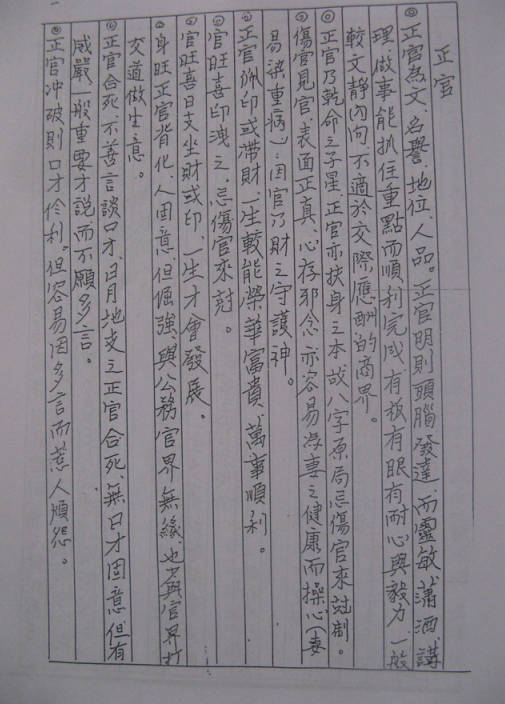 正官
◎正官為文、名譽、地位、人品。正官明則頭腦發達、而靈敏瀟洒、講
理、做事能抓住重點而順利完成有板有眼有耐心與毅力、一般
較文靜內向、不適於交際應酬的商界。
◎正官乃乾命之子星、正官亦扶身之本故八字原局忌傷官來尅制。
◎傷官見官、表面正真、心存邪念、亦容易為妻之健康而操心(妻
易染重病)：因官乃財之守護神。
◎正官佩印或帶財、一生較能榮華富貴、萬事順利。
◎官旺喜印洩之、忌傷官來尅。
◎官旺喜日支坐財或印、一生才會發展。
◎身旺正官背化、人固意、但倔強、與公務官界無緣、也少與官界打
交道做生意。
◎正官合死、不善言談口才、日月地支之正官合死、無口才固意、但有
威嚴一般重要才說而不願多言。
◎正官冲破則口才伶利。但容易因多言而惹人煩怨。